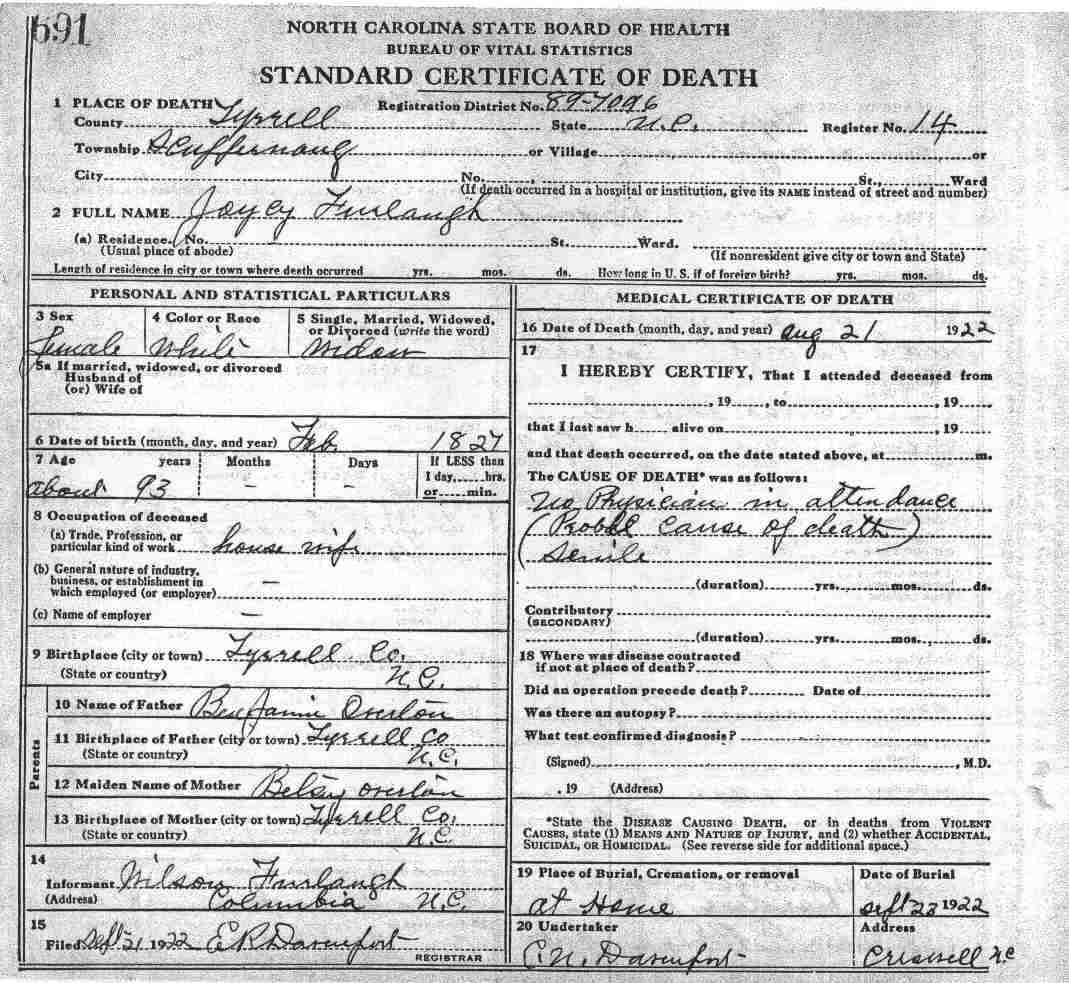 691
NORTH CAROLINA STATE BOARD OF HEALTH
BUREAU OF VITAL STATISTICS
STANDARD CERTIFICATE OF DEATH
1 PLACE OF DEATH Registration District No. 89-7096
County Tyrrell State N.C. Register No. 14
Township Scuppernong or Village or
City No. St., Ward
(If death occurred in a hospital or institution, give its NAME instead of street and number)
2 FULL NAME Joycy Furlaugh
(a) Residence. No. St. Ward.
(Usual place of abode) (If nonresident give city or town and State)
Length of residence in city or town where death occurred yrs. mos. ds. How long in U. S. if of foreign birth? yrs. mos. ds.
PERSONAL AND STATISTICAL PARTICULARS
3 Sex 4 Color or Race 5 Single, Married, Widowed,
or Divorced (write the word)
Female White Widow
5a If married, widowed, or divorced
Husband of
(or) Wife of
6 Date of birth (month, day, and year) Feb. 1827
7 Age years Months Days If LESS than
1 day, hrs.
about 93 - - or min.
8 Occupation of deceased
(a) Trade, Profession, or
particular kind of work house wife
(b) General nature of industry,
business, or establishment in
which employed (or employer) —
(c) Name of employer —
9 Birthplace (city or town) Tyrrell Co.
(State or country) N.C.
Parents
10 Name of Father Benjamin Overton
11 Birthplace of Father (city or town) Tyrrell Co
(State or country) N.C.
12 Maiden Name of Mother Betsy Overton
13 Birthplace of Mother (city or town) Tyrrell Co.
(State or country) N.C.
14
Informant Wilson Furlaugh
(Address) Columbia N.C.
15
Filed Sept 21 1922 E R Davenport
REGISTRAR
MEDICAL CERTIFICATE OF DEATH
16 Date of Death (month, day, and year) Aug 21 1922
17
I HEREBY CERTIFY, That I attended deceased from
, 19 , to , 19
that I last saw h alive on , 19
and that death occurred, on the date stated above, at m.
The CAUSE OF DEATH* was as follows:
No Physician in attendance
( cause of death)
Senile
(duration) yrs. mos. ds.
Contributory
(SECONDARY)
(duration) yrs. mos. ds.
18 Where was disease contracted
if not at place of death?
Did an operation precede death? Date of
Was there an autopsy?
What test confirmed diagnosis?
(Signed) , M.D.
, 19 (Address)
*State the DISEASE CAUSING DEATH, or in deaths from VIOLENT
CAUSES, state (1) MEANS AND NATURE OF INJURY, and (2) whether ACCIDENTAL,
SUICIDAL, OR HOMICIDAL. (See reverse side for additional space.)
19 Place of Burial, Cremation, or removal Date of Burial
At Home Sept 23 1922
20 Undertaker Address
C.N. Davenport Creswell N.C